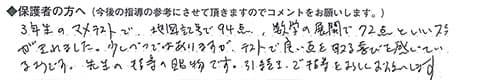 ◆保護者の方へ（今後の指導の参考にさせて頂きますのでコメントをお願いします。）
3年生のスタメテストで、地図記号で94点、数学の展開で72点といいスタ
がきれました。少しづつではありますが、テストで良い点を取る喜びを感じてい
るようです。先生の指導の賜物です。引き続きご指導をよろしくお願いします